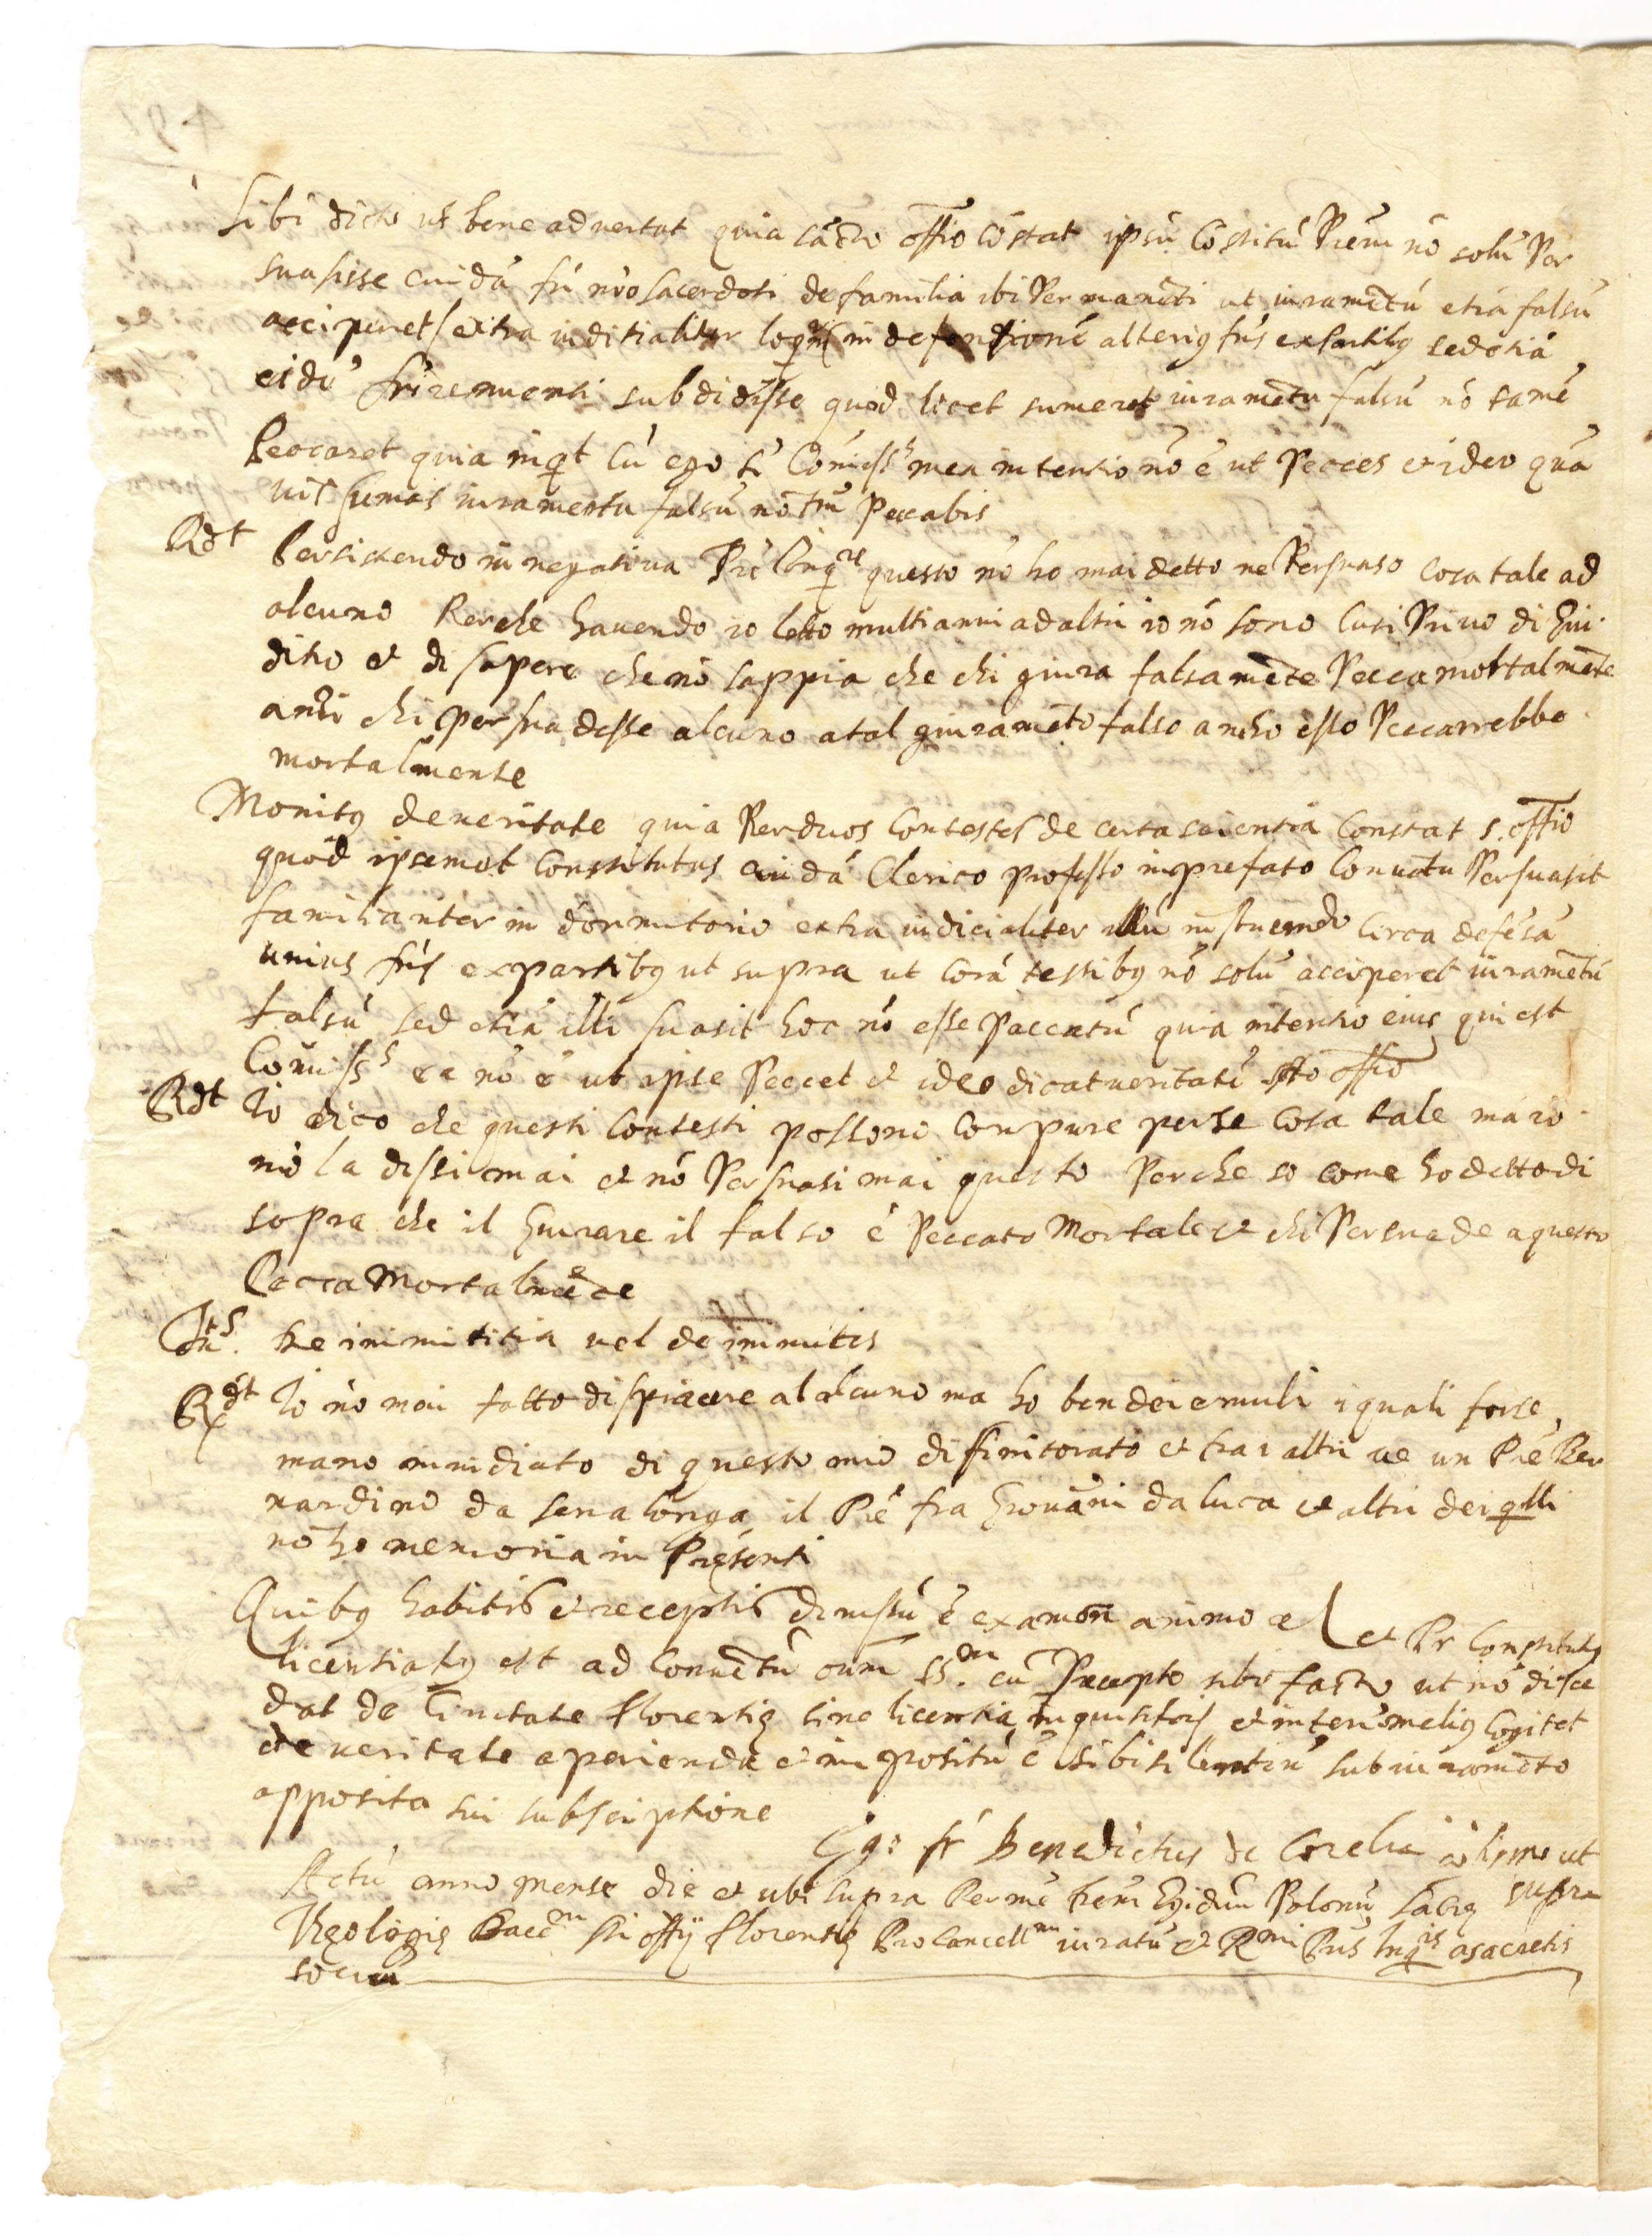 Sibi dicto ut bene advertat quia sācto offio cōstat ipsū Cōstitū Prēm nō solū Per
suasisse cuidā frī nr̄o sacerdoti de familia ibi Permanēti ut iuramētū etiā falsū
acciperet extra iuditialiter loq̄ in defensionē alterius fris ex partibus sed etiā
eidē frī renuenti subdidisse quod licet sumeret iuramētū falsū nō tamē
Peccaret quia inqt cū ego sī Cōmiss̄ mea intentio nō ē ut Pecces et ideo quā
vis sumas iuramentū falsū nō tn̄ Peccabis
Rdt Persistendo in negativa Prē Inqre questo nō ho mai detto ne Persuaso cosa tale ad
alcuno Perche havendo io letto multi anni ad altri io nō sono cusi Privo di Giu
ditio et di sapere che nō sappia che chi giura falsamēte Pecca mortalmēte
anzi chi persuadesse alcuno a tal giuramēto falso ancho esso Peccarrebbe
mortalmente
Monitus de veritate quia Per duos Contestes de certa scientia Constat s. offio
quod ipsemet Constitutus cuidā Clerico professo in prefato Convētu Persuasit
familianter in dormitorio extra iudicialiter illū instruendo Circa defēsā
unius fris ex partibus ut supra ut corā testibus nō solū acciperet iuramētū
falsū sed etiā illi suasit hoc nō esse Peccatū quia intentio eius qui est
Cōmiss̄ ea nō ē ut ipse Peccet et ideo dicat veritatē Sto offio
Rdt Io dico che questi Contesti possono conpure perse cosa tale ma io
nō la dissi mai et nō Persuasi mai questo Perche so come ho detto di
sopra che il Giurare il falso é Peccato Mortale et chi Persuade a questo
Pecca Mortalmēte
Ints. De inimititia vel de inimicis
Rdt Io nō mai fatto dispiacere al alcuno ma ho ben dei emuli i quali forse
mano invidiato di questo mio difinitorato et tra i altri ve un Prē Ber
nardino da Senalonga il Prē fra Giovāni da Luca et altri dei qlli
nō ho memoria in Presenti
Quibus habitis et receptis dimissū ē examen animo et et Pr Constitutus
licentiatus est ad Convētū oīum SS.m cū Precepto sibi facto ut nō disce
dat de Civitate Florentie sine licentia Inquisitoris et interim melius cogitet
de veritate aperienda et impositū ē sibi silentiū sub iuramēto
apposita sui subscriptione
Ego fr Benedictus de Corelia cōfirmo ut
supra
Actū anno mense die et ubi supra Per me frēm Egidiū Polonū Sacrę
Theologię Baccm Sti offij Florentię Procancellm iuratū et Rmi Pris Inqris a secretis
sociū